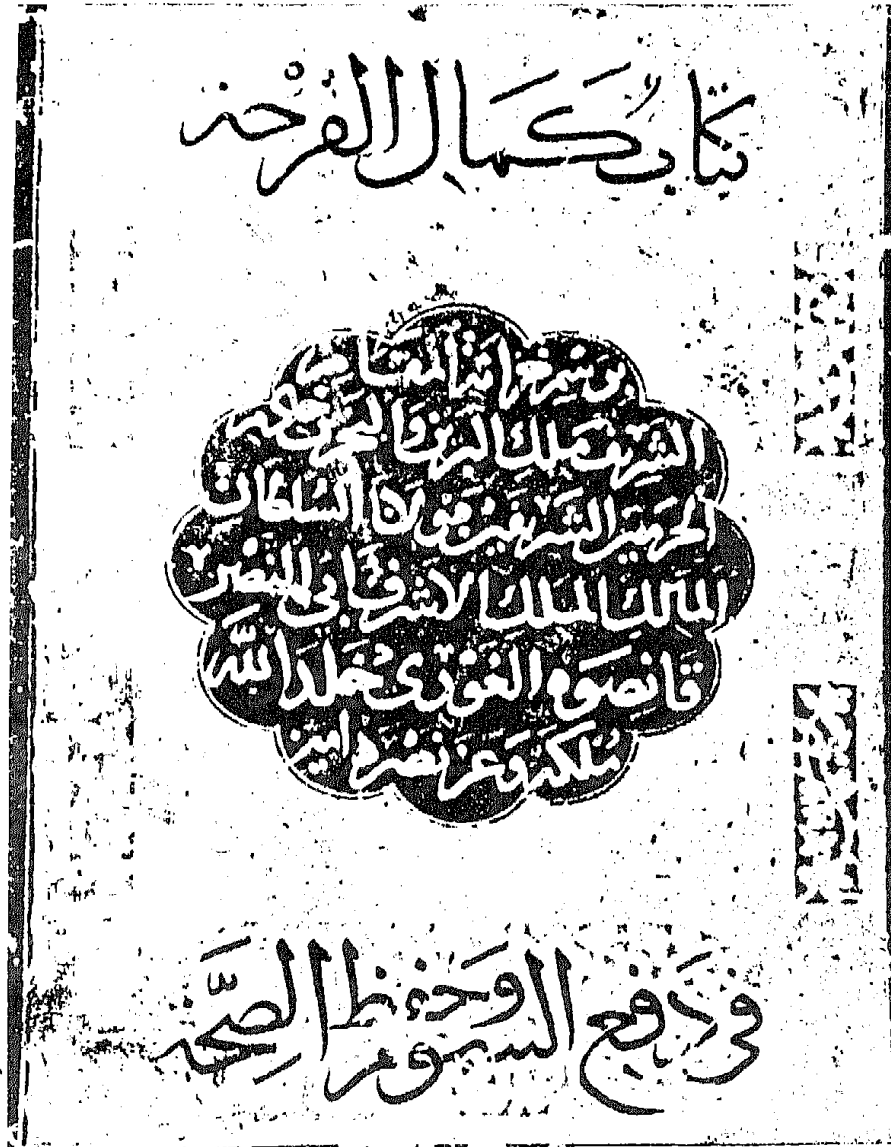 كتاب كمال الفرحة
برسم خزانة المقام
الشريف ملك البرين والبحرين خادم
الحرمين الشريفين مولانا السلطان
المالك الملك الاشرف ابي النصر
قانصوه الغوري خلد الله
ملكه وعز نصره امين
في دفع السموم وحفظ الصحة